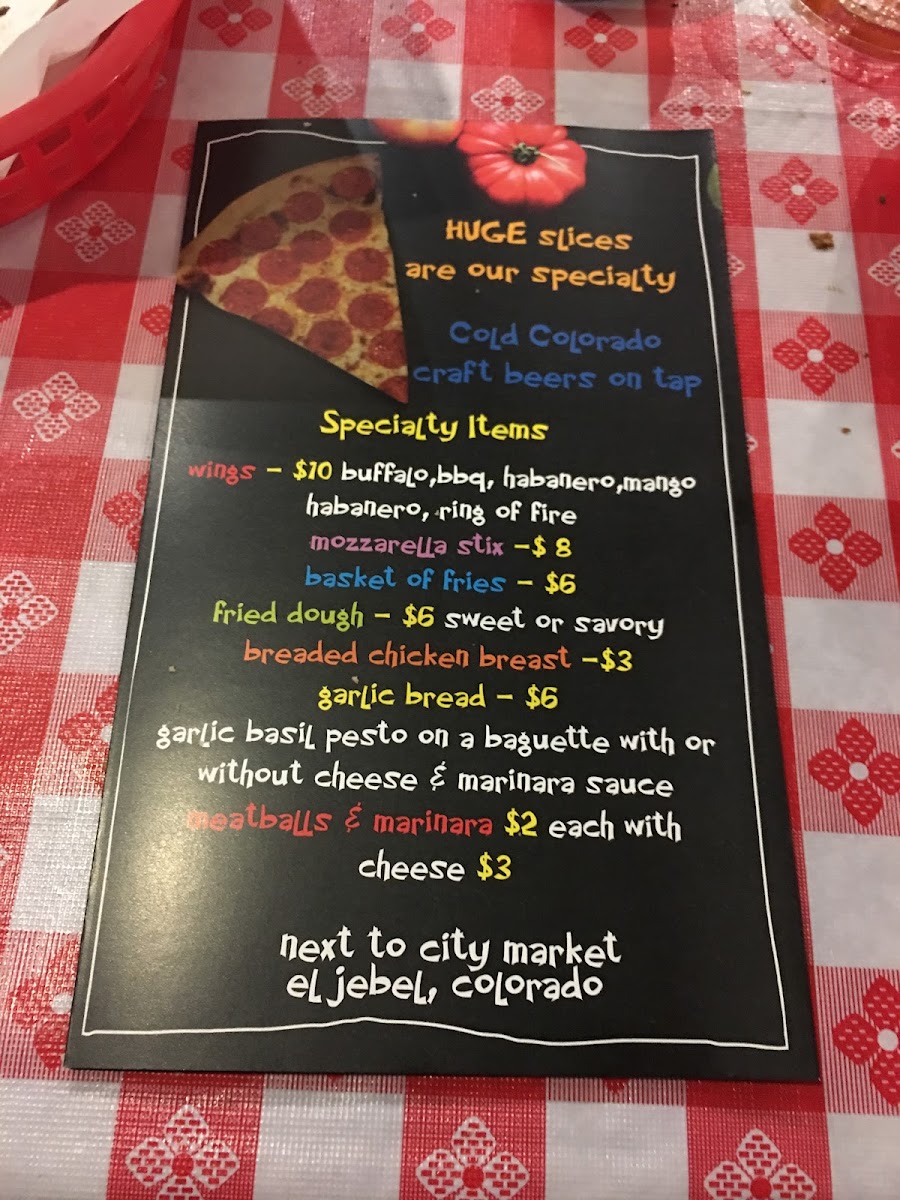 HUGE slices
are our specialty
Cold Colorado
craft beers on tap
Specialty Items
wings – $10 buffalo,bbq, habanero,mango
habanero, ring of fire
mozzarella stix –$ 8
basket of fries – $6
fried dough – $6 sweet or savory
breaded chicken breast –$3
garlic bread – $6
garlic basil pesto on a baguette with or
without cheese & marinara sauce
meatballs & marinara $2 each with
cheese $3
next to city market
el jebel, colorado